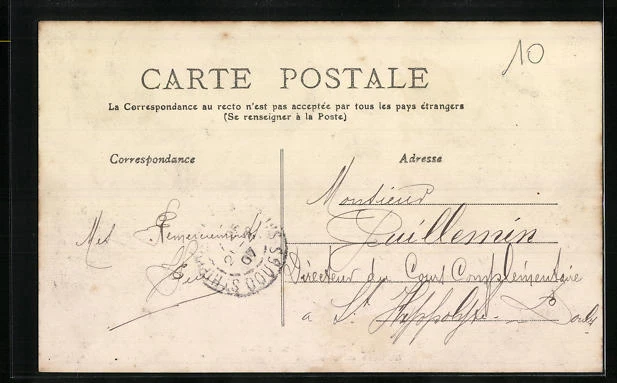 10
CARTE POSTALE
La Correspondance au recto n'est pas acceptée par tous les pays étrangers
(Se renseigner à la Poste)
Correspondance
Adresse
Monsieur
Guillemin
Directeur du Cours Complémentaire
a St Hippolyte Doubs
Mes Remerciements